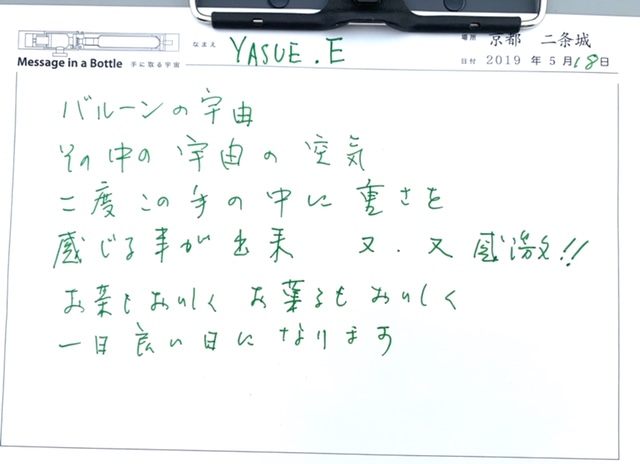 なまえ YASUE.E 場所 京都 二条城
Message in a Bottle 手に取る宇宙 日付 2019 年 5 月 18 日
バルーンの宇宙
その中の宇宙の空気
二度この手の中に重さを
感じる事が出来 又、又 感激!!
お茶もおいしく お菓子もおいしく
一日良い日になります